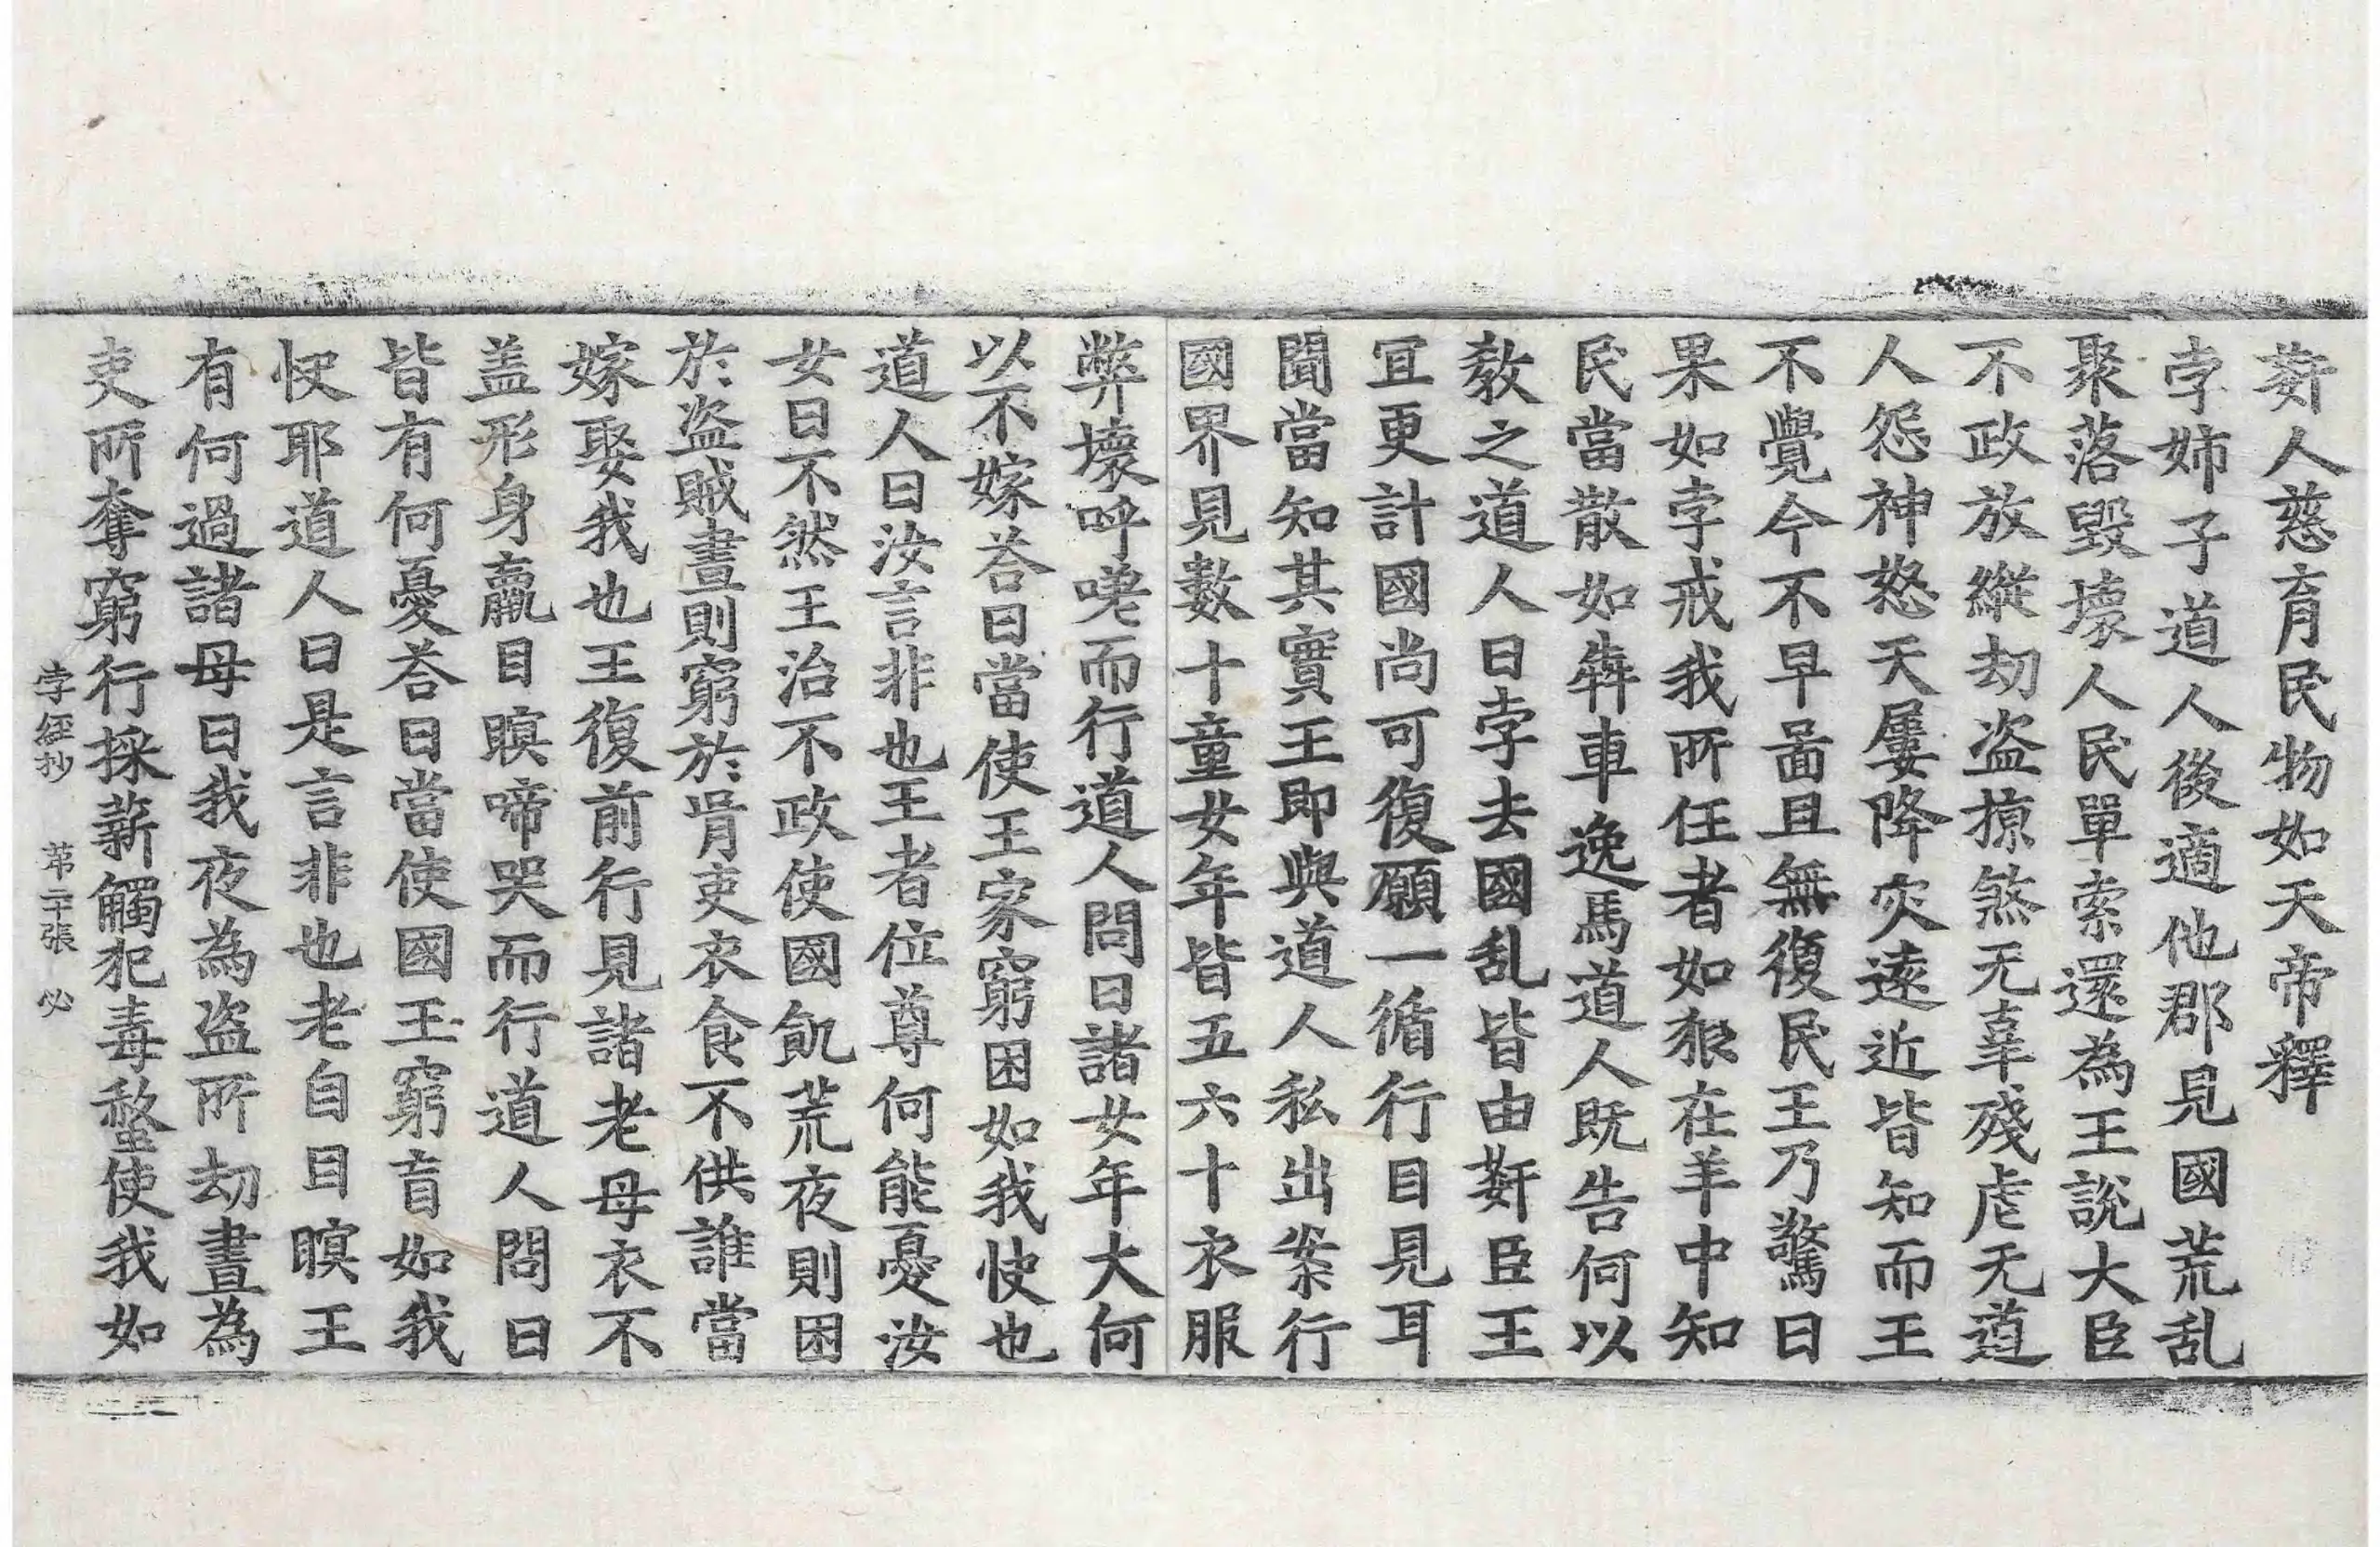 姧人慈育民物如天帝釋
孛姉子道人後適他郡見國荒乱
聚落毀壞人民單索還為王說大臣
不政放縱劫盜掠煞无辜殘虐无道
人怨神怒天屢降灾遠近皆知而王
不覺今不早啚且無復民王乃驚曰
果如孛戒我所任者如狼在羊中知
民當散如犇車逸馬道人既告何以
教之道人曰孛去國乱皆由姧臣王
冝更計國尚可復願一循行目見耳
聞當知其實王即與道人私出案行
國界見數十童女年皆五六十衣服
弊壞呼嗟而行道人問曰諸女年大何
以不嫁荅曰當使王家窮困如我快也
道人曰汝言非也王者位尊何能憂汝
女曰不然王治不政使國飢荒夜則困
於盜賊晝則窮於㒵吏衣食不供誰當
嫁娶我也王復前行見諸老母衣不
盖形身羸目瞑啼哭而行道人問曰
皆有何憂荅曰當使國王窮盲如我
快耶道人曰是言非也老自目瞑王
有何過諸母曰我夜為盜所劫晝為
吏所奪窮行採薪觸犯毒螫使我如
孛經抄 苐二十張 必